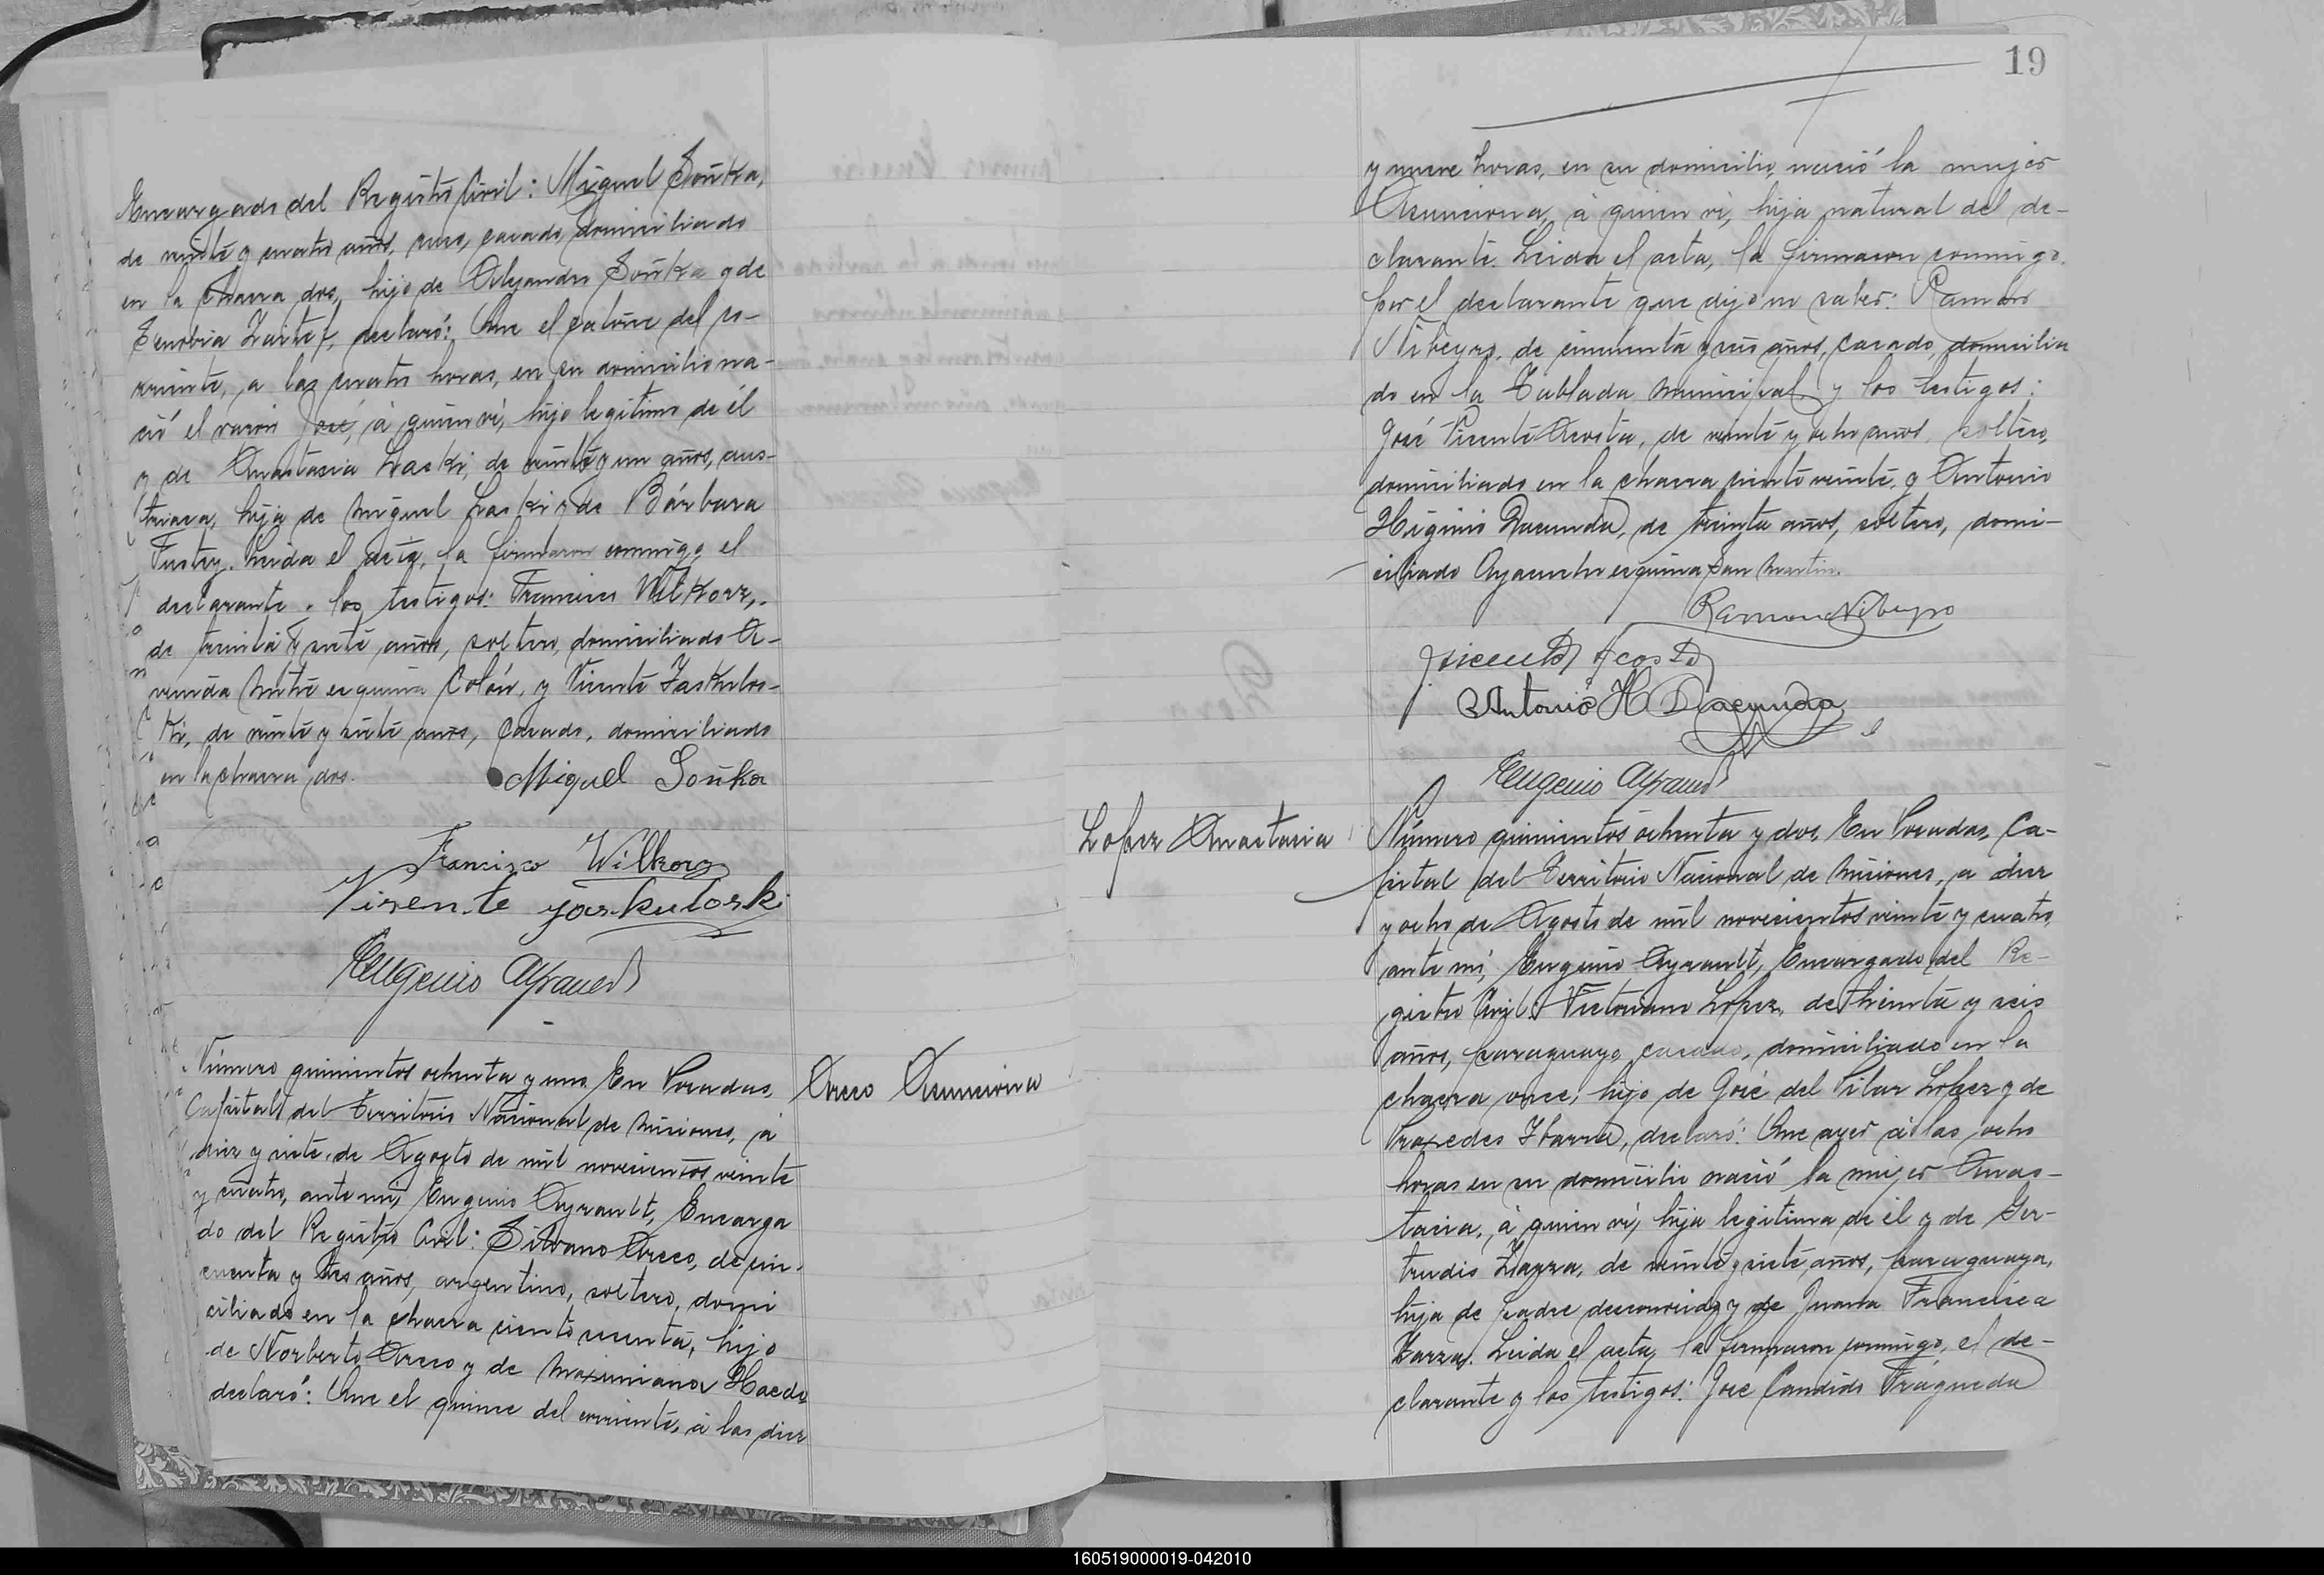 Encargado del Registro Civil: Miguel Soñka,
de veinte y cuatro años, ruso, casado, domiciliado
en la chacra dos, hijo de Alejandro Soñka y de
Senobia, declaró: Que el catorce del co-
rriente, a las cuatro horas, en su domicilio na-
ció el varón José, á quien ví, hijo legítimo de él
y de Anastasia Laski, de veinte y un años, aus-
triaca, hija de Miguel Laski y de Bárbara
Leida el acta, la firmaron conmigo el
declarante y los testigos: Francisco Wilkorz,
de treinta y siete años, soltero, domiciliado A-
venida Mitre esquina Colón, y Vicente Jaskulos-
ki, de veinte y siete años, casado, domiciliado
en la chacra dos.
Miguel Soñka
Francisco Wilkorz
Visente Jaskuloski
Eugenio Ayrault
Número quinientos ochenta y uno. En Posadas,
Capital del Territorio Nacional de Misiones, á
diez y siete de Agosto de mil novecientos veinte
y cuatro, ante mí, Eugenio Ayrault, Encarga
do del Registro Civil: Silvano Areco, de cin-
cuenta y tres años, argentino, soltero, domi
ciliado en la chacra ciento sesenta, hijo
de Norberto Areco y de Maximiana Haedo
declaró: Que el quince del corriente, á las diez
Areco Asunciona
19
y nueve horas, en su domicilio, nació la mujer
Asunciona, á quien ví, hija natural del de-
clarante. Leida el acta, la firmaron conmigo,
por el declarante que dijo no saber: Ramon
Nibeyro, de cincuenta y seis años, casado, domicilia
do en la Tablada Municipal y los testigos:
José Vicente Acosta, de veinte y ocho años, soltero,
domiciliado en la chacra ciento veinte, y Antonio
Higinio Dacunda, de treinta años, soltero, domi-
ciliado Ayacucho esquina San Martin.
Ramon Nibeyro
J Vicente Acosta
Antonio H Dacunda
Eugenio Ayrault
Lopez Anastacia
Número quinientos ochenta y dos. En Posadas, Ca-
pital del Territorio Nacional de Misiones, a diez
y ocho de Agosto de mil novecientos veinte y cuatro,
ante mí, Eugenio Ayrault, Encargado del Re-
gistro Civil: Victoriano Lopez, de treinta y seis
años, paraguayo, casado, domiciliado en la
chacra once, hijo de José del Pilar Lopez y de
Praxedes Ibarra, declaró: Que ayer á las ocho
horas en su domicilio nació la mujer Anas-
tacia, á quien ví, hija legitima de él y de Ger-
trudis Zarza, de veinte y siete años, paraguaya,
hija de padre desconocido y de Juana Francisca
Zarza. Leida el acta, la firmaron conmigo, el de-
clarante y los testigos: José Candido Fragueda
160519000019-042010